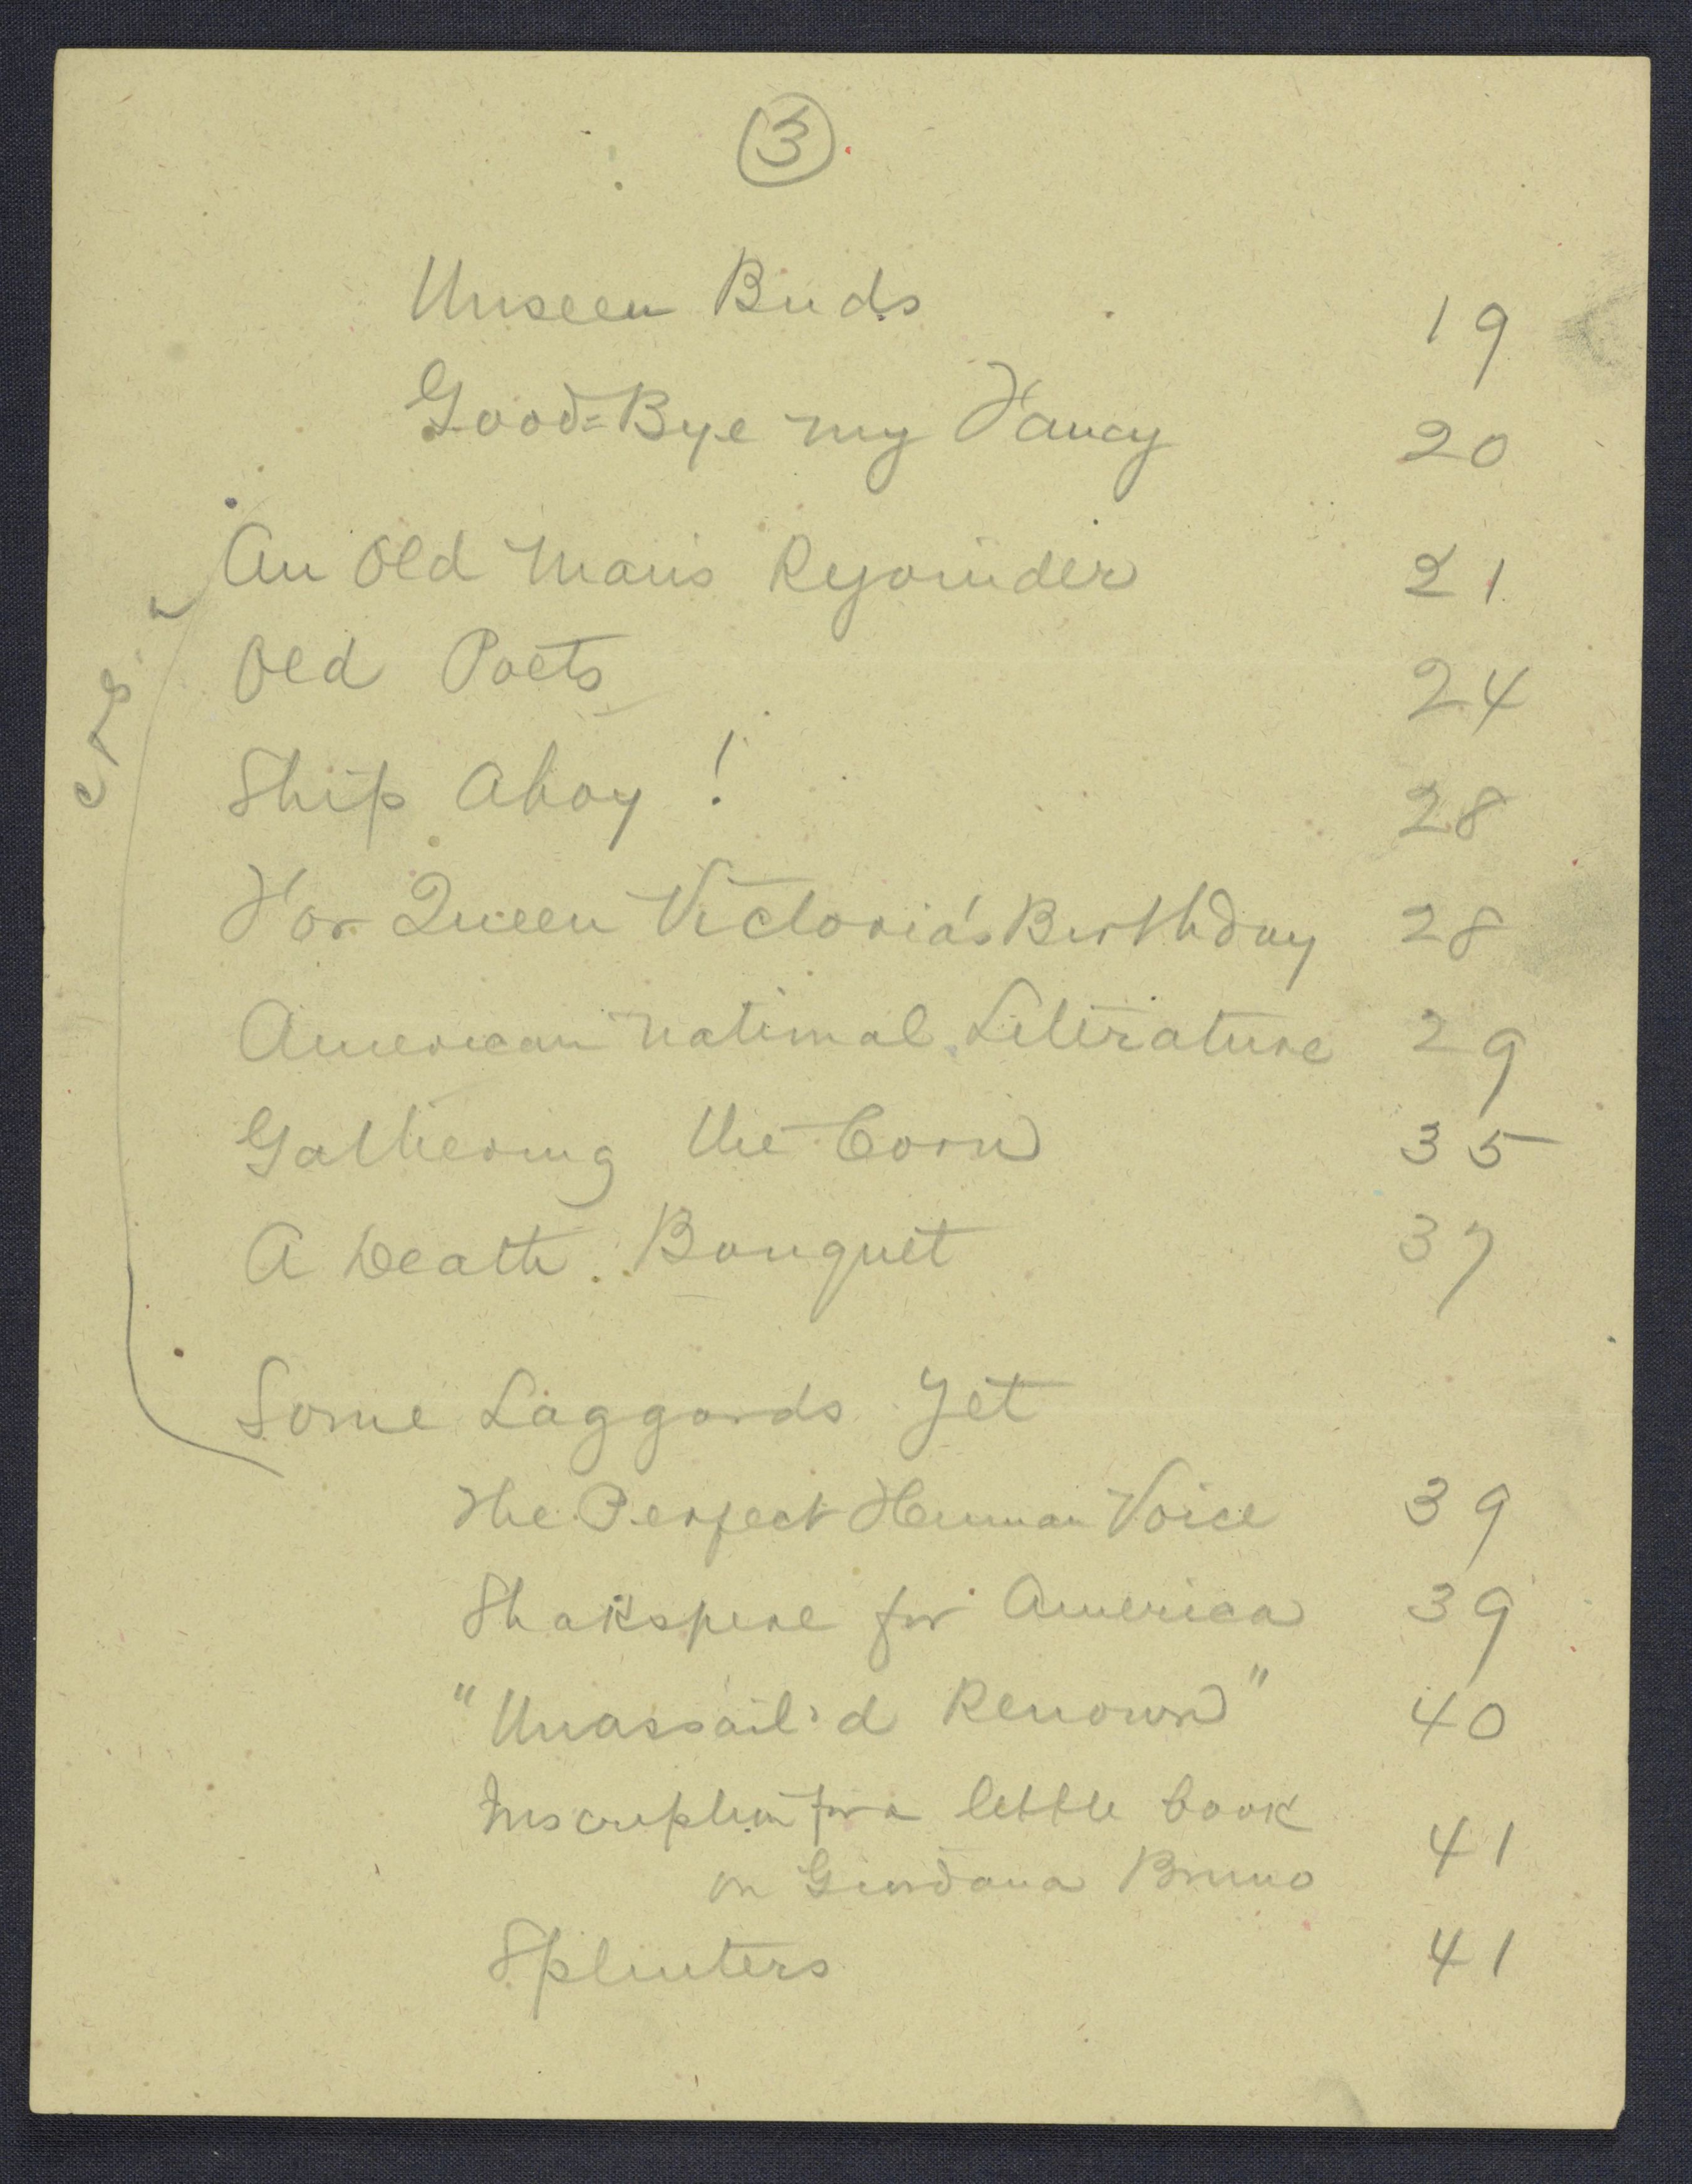 3
Unseen Buds 19
Good=Bye my Fancy 20
An Old Man's Rejoinder 21
Old Poets 24
Ship Ahoy! 28
For Queen Victoria's Birthday 28
American National Literature 29
Gathering the Corn 35
A Death Bouquet 37
Some Laggards Yet
The Perfect Human Voice 39
Shakspere for America 39
"Unassail'd Renown" 40
Inscription for a little book
on Giordano Bruno 41
Splinters 41